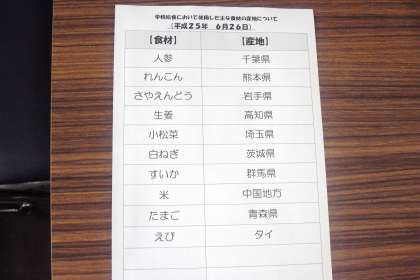 学校給食において使用した主な食材の産地について
(平成25年 6月26日)
【食材】 【産地】
人参 千葉県
れんこん 熊本県
さやえんどう 岩手県
生姜 高知県
小松菜 埼玉県
白ねぎ 茨城県
すいか 群馬県
米 中国地方
たまご 青森県
えび タイ